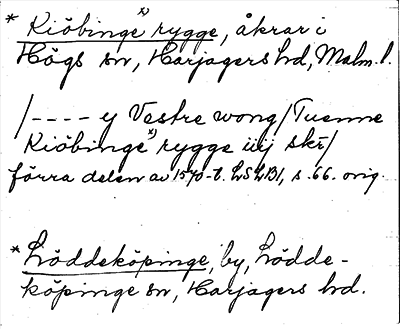 * Kiöbinge x) rygge, åkrar i
Högs sn, Harjagers hd, Malm. l.
/---- y Vestre wong/Tuenne
Kiöbinge x) rygge iiij skr/
förra delen av 1570-t. LSLB1, s. 66. orig.
* Löddeköpinge, by, Lödde-
köpinge sn, Harjagers hd.